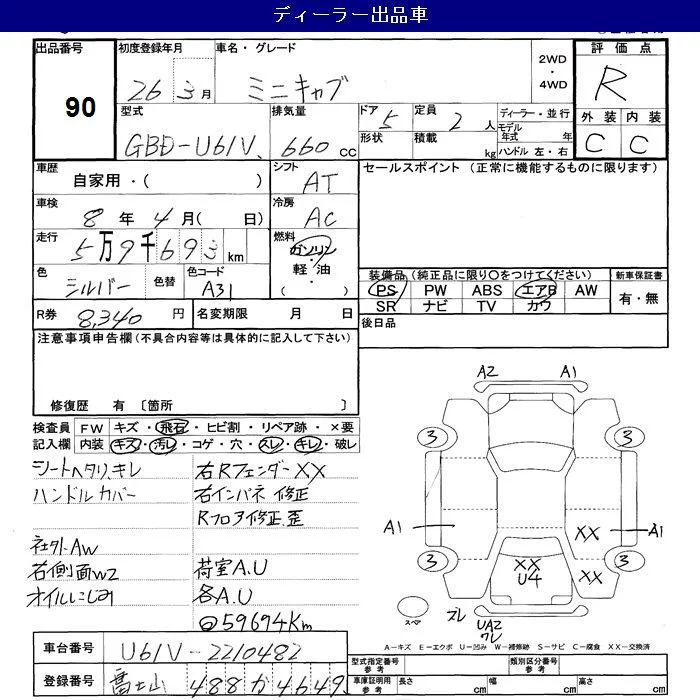 ディーラー出品車
出品番号
90
初度登録年月
26 3月
車名・グレード
ミニキャブ
2WD
・
4WD
評価点
R
型式
GBD-U61V
排気量
660 cc
ドア 5
形状
定員 2 人
積載 kg
ディーラー・並行
モデル年式 年
ハンドル 左・右
外装 内装
C C
車歴
自家用・( )
シフト
AT
セールスポイント (正常に機能するものに限ります)
車検
8年 4月( 日)
冷房
AC
走行
5万9千693 km
燃料
ガソリン
・
軽油
・
( )
色
シルバー
色替
色コード
A31
装備品(純正品に限り○をつけてください)
新車保証書
PS PW ABS エアB AW
有・無
SR ナビ TV カワ
R券 8,340 円
名変期限 月 日
後日品
注意事項申告欄(不具合内容等は具体的に記入して下さい)
修復歴 有 〔箇所 〕
検査員 FW キズ・飛石・ヒビ割・リペア跡・×要
記入欄 内装 キズ・汚レ・コゲ・穴・スレ・キレ・破レ
シートヘタリ、キレ
ハンドルカバー
社外AW
右側面W2
オイルにじみ
右Rフェンダー XX
右インパネ修正
Rフロア修正、歪
荷室A.U
各A.U
59694Km
A2 A1
3 3
A1 XX A1
3 XX XX 3
U4
スペア
ズレ UA2
ワレ
A－キズ E－エクボ U－凹み W－補修跡 S－サビ C－腐食 XX－交換済
車台番号 U61V-2210482
登録番号 富士山 488 か 4649
型式指定番号
参考
類別区分番号
参考
車庫証明用
参考
長さ cm
幅 cm
高さ cm